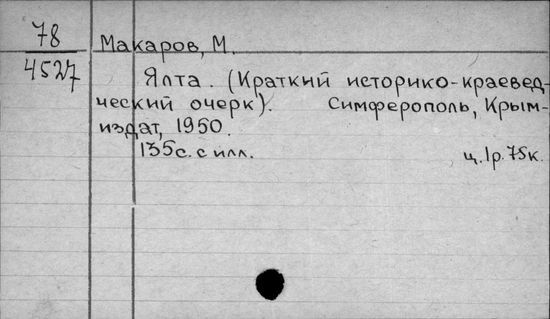 78
4527
Макаров, М.
Ялта. (Краткий историко-краевед-
ческий очерк). Симферополь, Крым-
издат, 1950.
135с. с илл. ц. 1р. 75к.